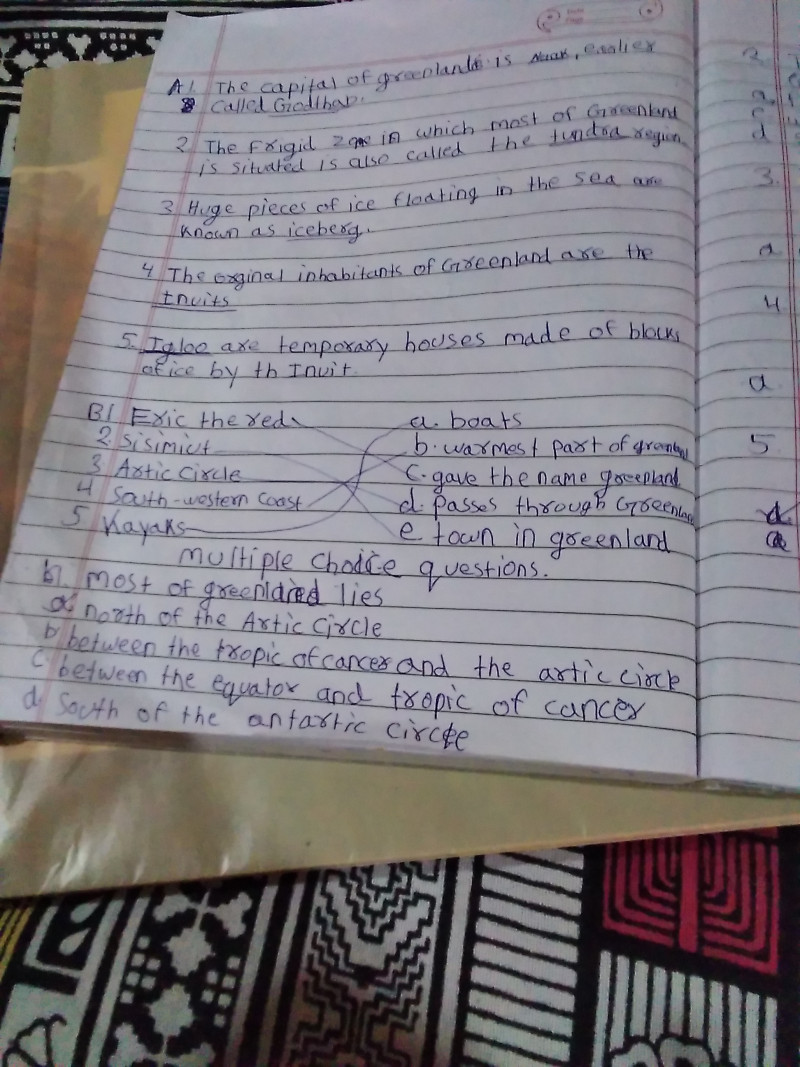 A1. The capital of greenlande is Nuuk, earlier
called Godthab.
2 The Frigid zone in which most of Greenland
is situated is also called the tundra region
3 Huge pieces of ice floating in the sea are
known as iceberg.
4 The orginal inhabitants of Greenland are the
Inuits
5. Igloo are temporary houses made of blocks
of ice by th Inuit.
B1 Eric the red a. boats
2 Sisimiut b. warmest part of greenland
3 Artic circle c. gave the name greenland
4 South-western coast d. passes through Greenland
5 Kayaks e town in greenland
multiple choice questions.
b1. most of greenland lies
a north of the Artic circle
b between the tropic of cancer and the artic circle
c between the equator and tropic of cancer
d. South of the antartic circle
2.
a.
c
d
3.
a
4
a
5
d